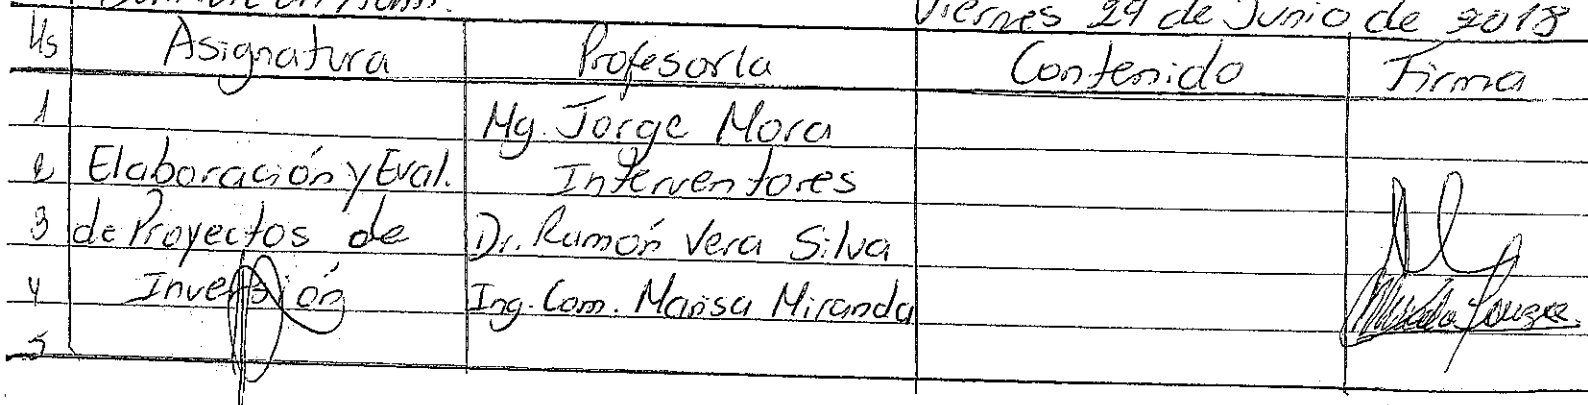 Viernes 29 de Junio de 2018
Hs Asignatura Profesor/a Contenido Firma
1 Mg. Jorge Mora
2 Elaboración y Eval. Interventores
3 de Proyectos de Dr. Ramón Vera Silva
4 Inversión Ing. Com. Marisa Miranda
5